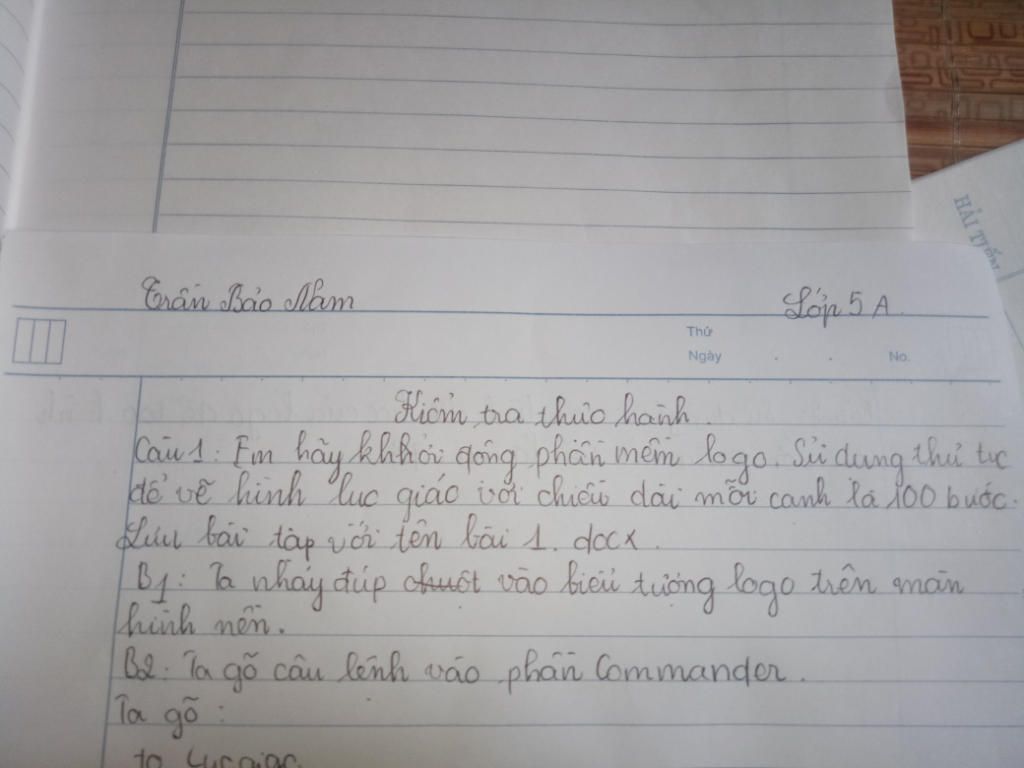 HẢI TIẾN
Trần Bảo Nam
Lớp 5 A.
Thứ
Ngày . . No.
Kiểm tra thực hành.
Câu 1: Em hãy khhởi động phần mềm logo. Sử dụng thủ tục
để vẽ hình lục giác với chiều dài mỗi cạnh là 100 bước.
Lưu bài tập với tên bài 1. docx.
B1: Ta nháy đúp chuột vào biểu tượng logo trên màn
hình nền.
B2: Ta gõ câu lệnh vào phần Commander.
Ta gõ:
to Lucgiac